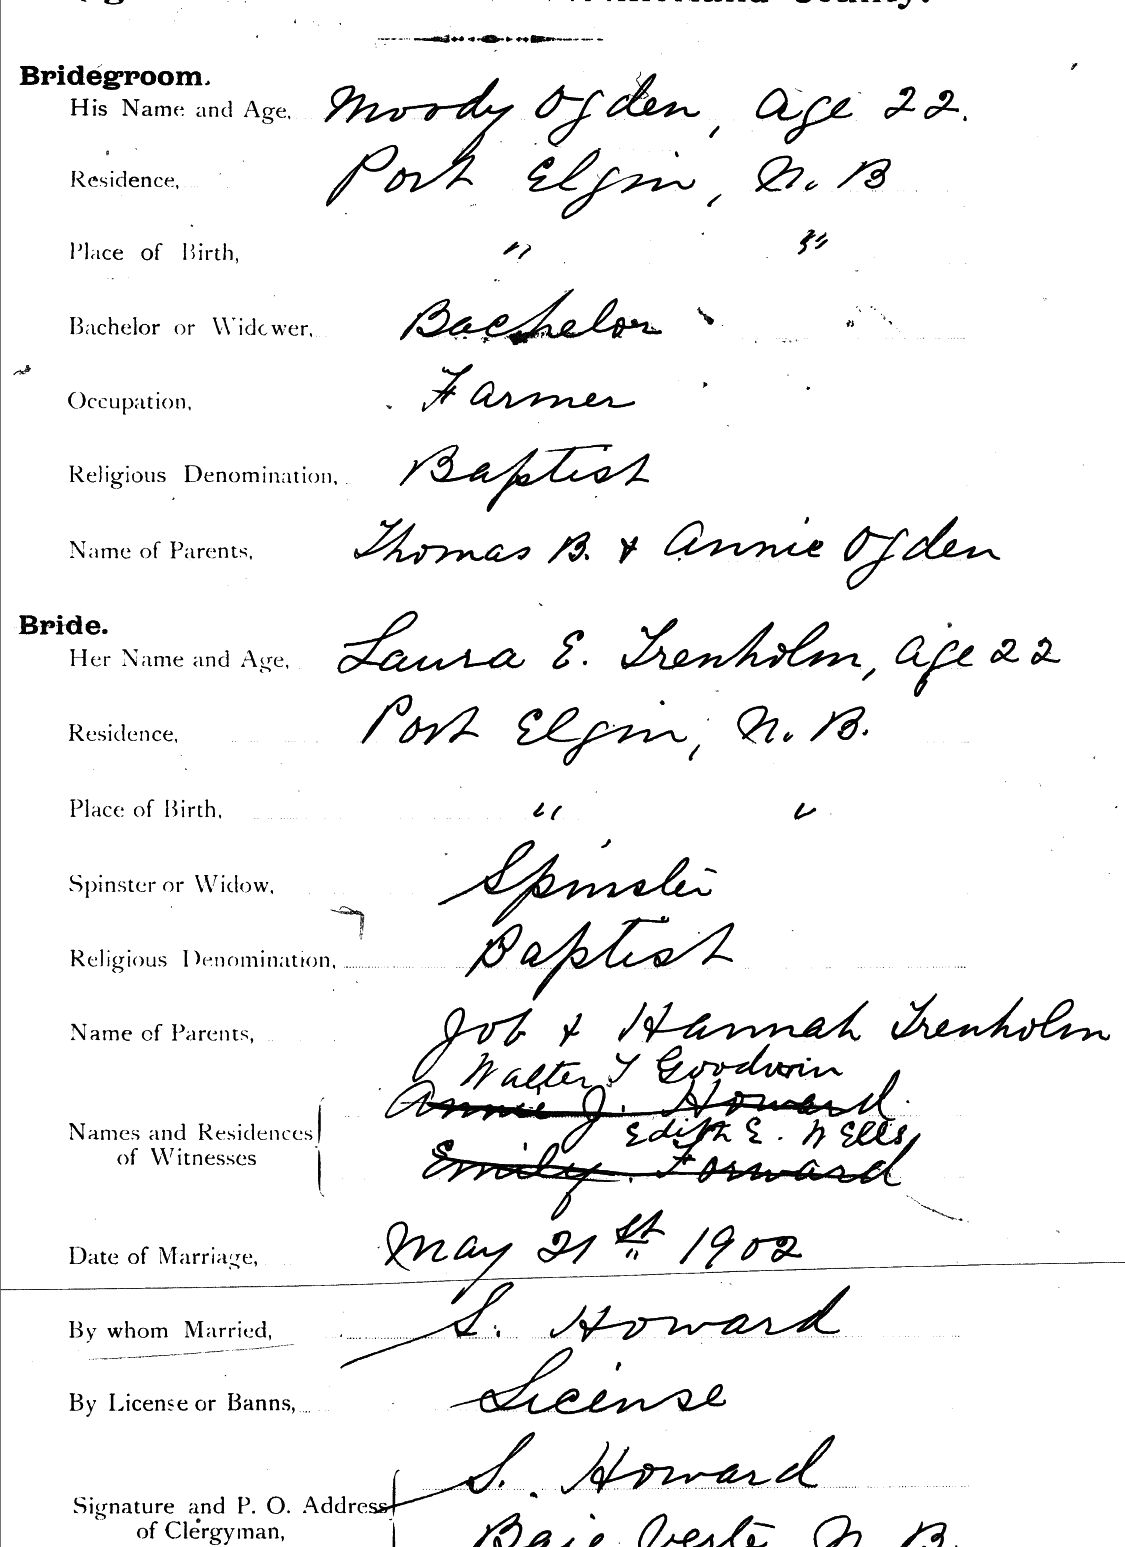 County.
Bridegroom.
His Name and Age, Moody Ogden, age 22.
Residence, Port Elgin, N. B
Place of Birth, " "
Bachelor or Widower, Bachelor
Occupation, Farmer
Religious Denomination, Baptist
Name of Parents, Thomas B. & Annie Ogden
Bride.
Her Name and Age, Laura E. Trenholm, age 22
Residence, Port Elgin, N. B.
Place of Birth, " "
Spinster or Widow, Spinster
Religious Denomination, Baptist
Name of Parents, Job & Hannah Trenholm
Walter T Goodwin
Annie J. Howard.
Names and Residences Edith E. Wells
of Witnesses Emily Forward
Date of Marriage, May 21st 1902
By whom Married, S. Howard
By License or Banns, License
S. Howard
Signature and P. O. Address
of Clergyman, Baie Verte N. B.